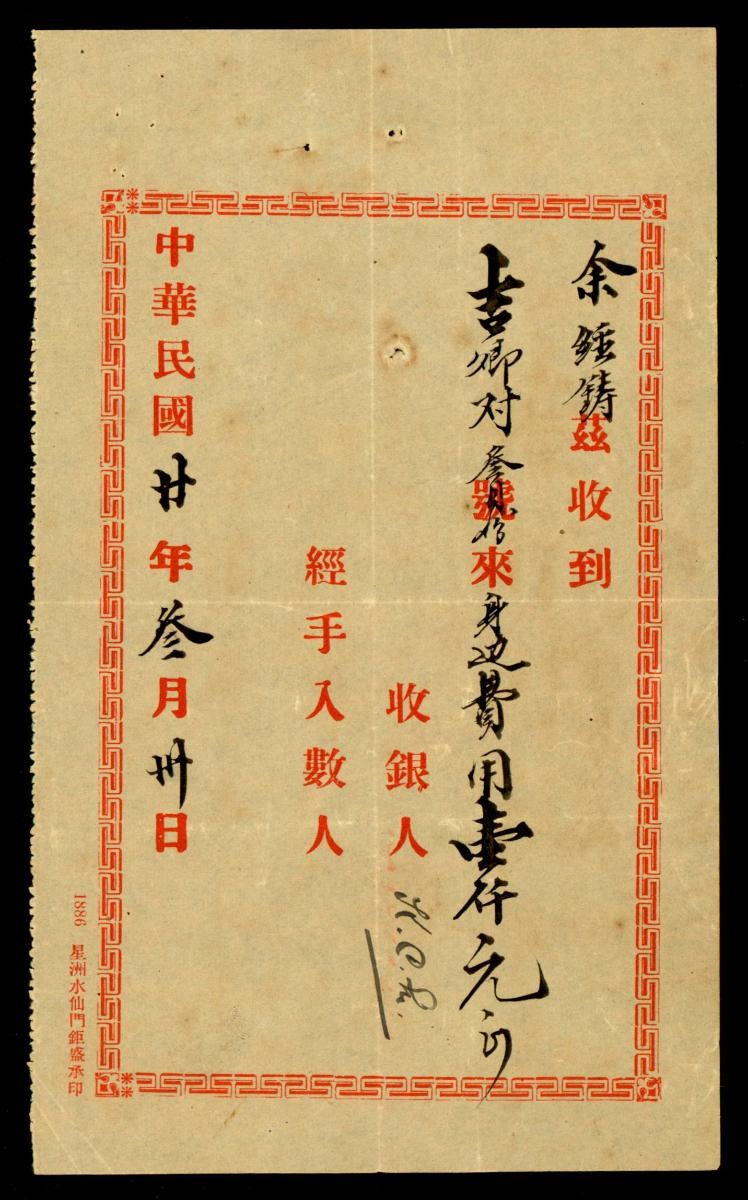 余 鑄茲收到
吉卿对 叁 號來 身边費用壹仟元
收銀人
經手入數人
中華民國廿年叁月卅日
1886 星洲水仙門鉅盛承印